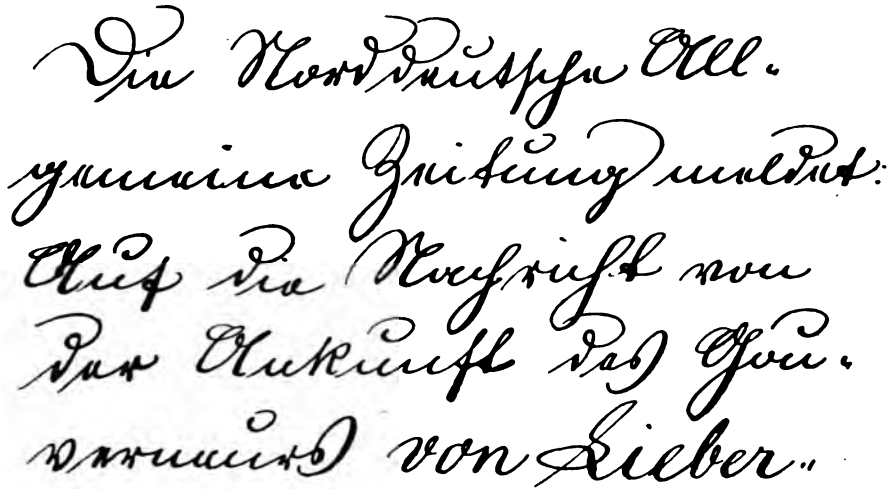 Die Norddeutsche All-
gemeine Zeitung meldet:
Auf die Nachricht von
der Ankunft des Gou-
verneurs von Lieber-